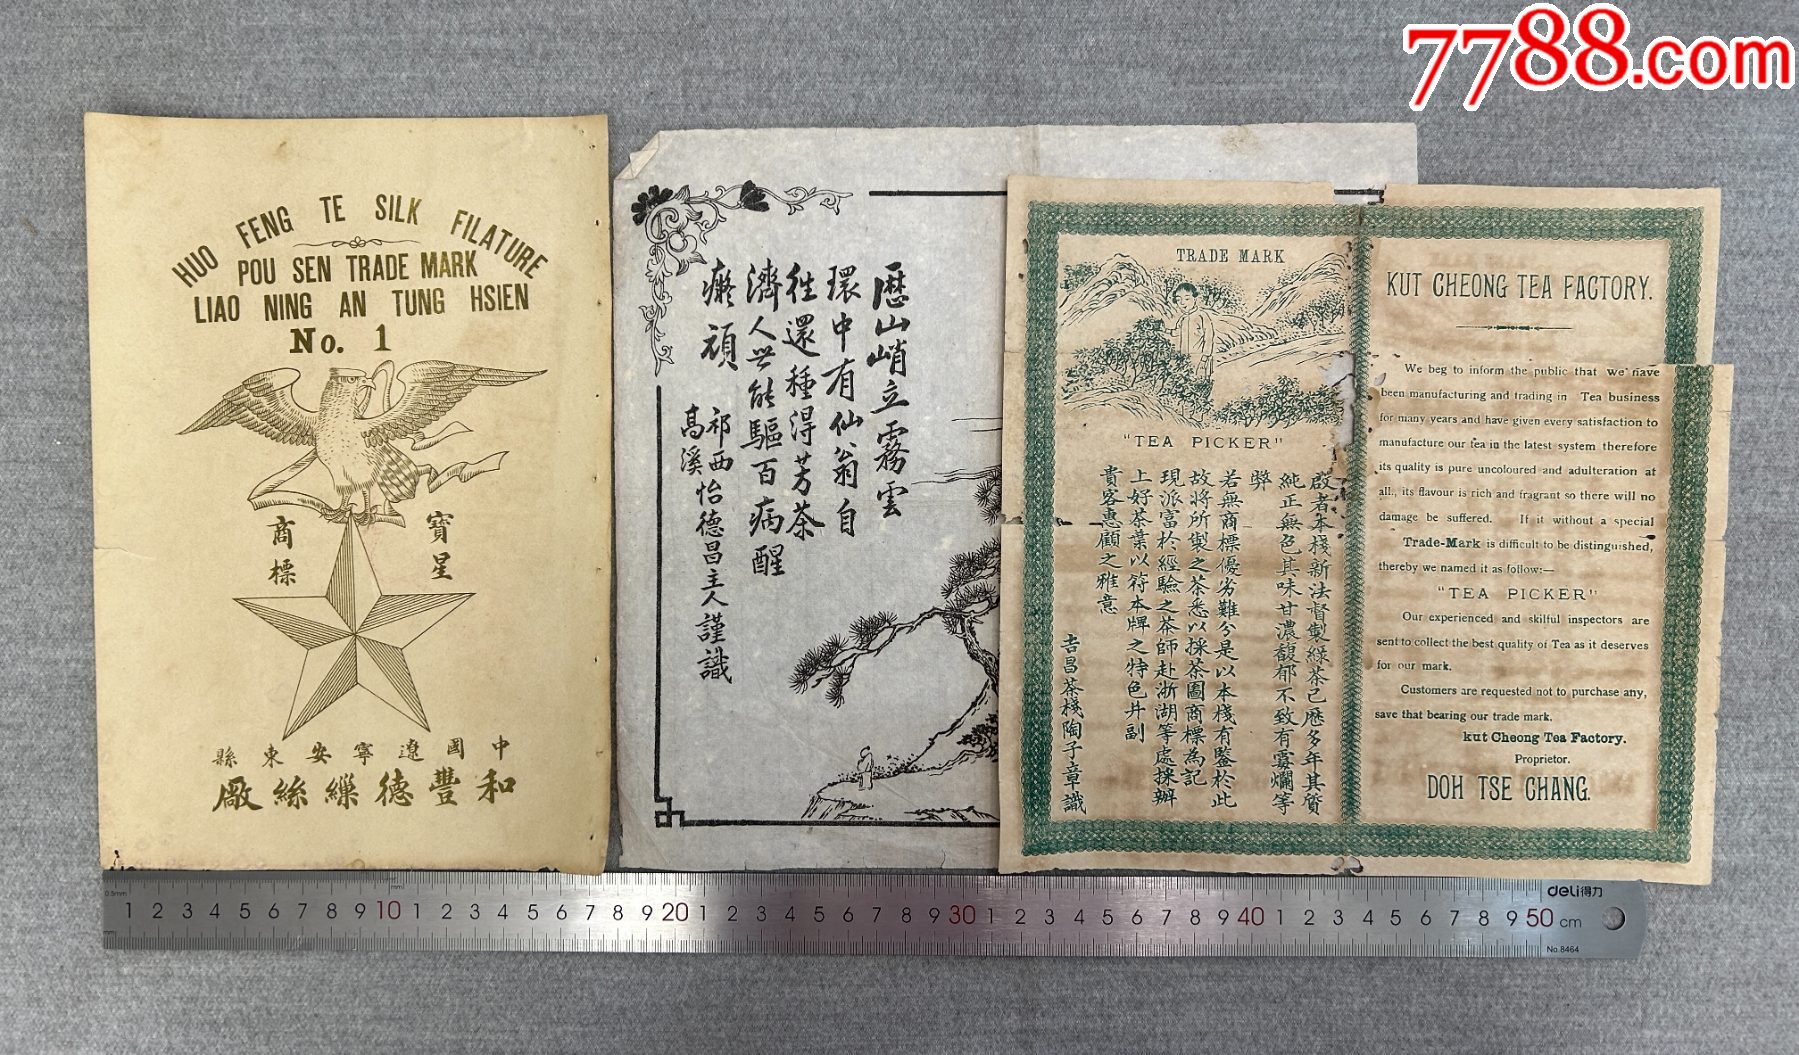 7788.com
HUO FENG TE SILK FILATURE
POU SEN TRADE MARK
LIAO NING AN TUNG HSIEN
No. 1
寶星
商標
中國遼寧安東縣
和豐德繅絲廠
歷山峭立霧雲
環中有仙翁自
往還種得芳茶
濟人世能驅百病醒
癡頑
祁西怡德昌主人謹識
高溪
TRADE MARK
"TEA PICKER"
啟者本棧新法督製綠茶已歷多年其質
純正無色其味甘濃馥郁不致有霉爛等
弊
若無商標優劣難分是以本棧有鑒於此
故將所製之茶悉以採茶圖商標為記
現派富於經驗之茶師赴浙湖等處採辦
上好茶葉以符本牌之特色并副
貴客惠顧之雅意
吉昌茶棧陶子章識
KUT CHEONG TEA FACTORY.
We beg to inform the public that we have
been manufacturing and trading in Tea business
for many years and have given every satisfaction to
manufacture our tea in the latest system therefore
its quality is pure uncoloured and adulteration at
all., its flavour is rich and fragrant so there will no
damage be suffered. If it without a special
Trade-Mark is difficult to be distinguished,
thereby we named it as follow:—
"TEA PICKER"
Our experienced and skilful inspectors are
sent to collect the best quality of Tea as it deserves
for our mark.
Customers are requested not to purchase any,
save that bearing our trade mark.
kut Cheong Tea Factory.
Proprietor.
DOH TSE CHANG.
0.5mm
1 2 3 4 5 6 7 8 9 10 1 2 3 4 5 6 7 8 9 20 1 2 3 4 5 6 7 8 9 30 1 2 3 4 5 6 7 8 9 40 1 2 3 4 5 6 7 8 9 50 cm
deli得力
No.8464